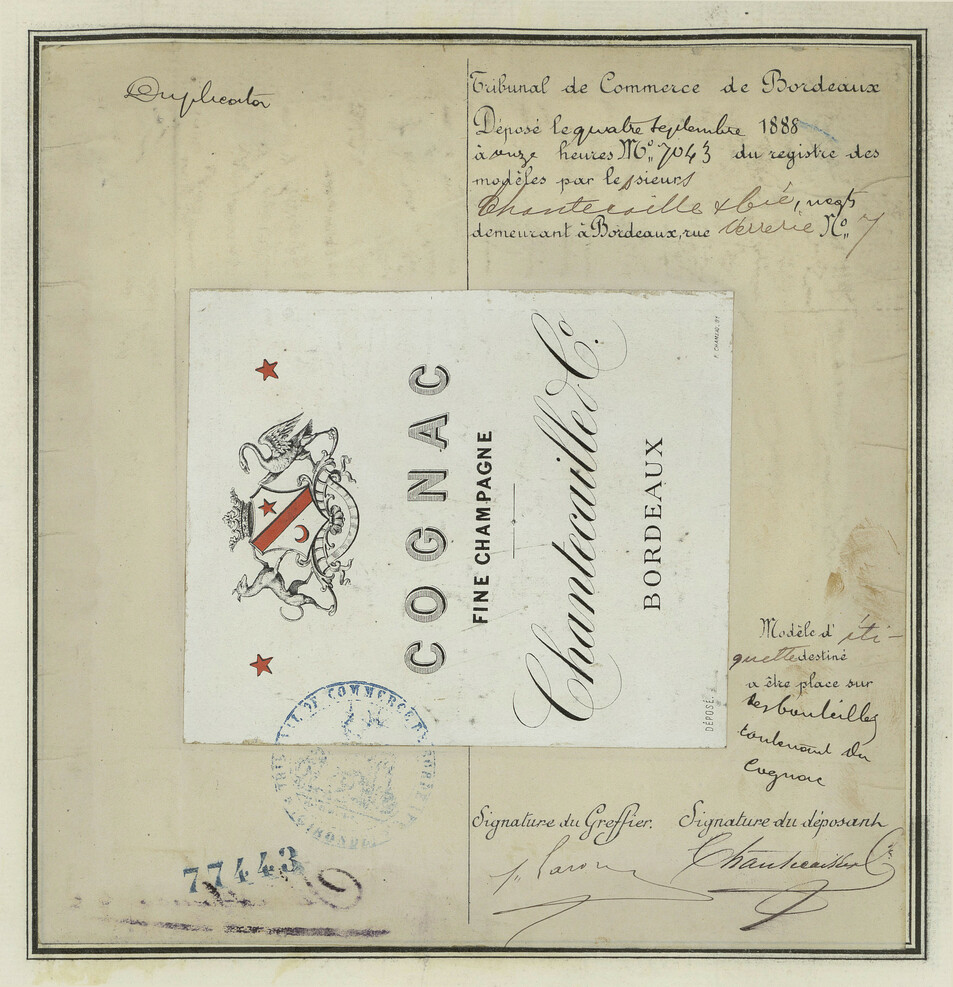 Duplicata
Tribunal de Commerce de Bordeaux
Déposé le quatre Septembre 1888
à onze heures No 7043 du registre des
modèles par les sieurs
Chantecaille & Cie, negts
demeurant à Bordeaux, rue Verrerie No 7
COGNAC
FINE CHAMPAGNE
Chantecaille & Co.
BORDEAUX
DÉPOSÉ.
Modèle d'éti-
quette destiné
a être place sur
des bouteilles
contenant du
Cognac
TRIBUNAL DE COMMERCE DE BORDEAUX
(GIRONDE)
Signature du Greffier. Signature du déposant
Chantecaille & Cie
77443